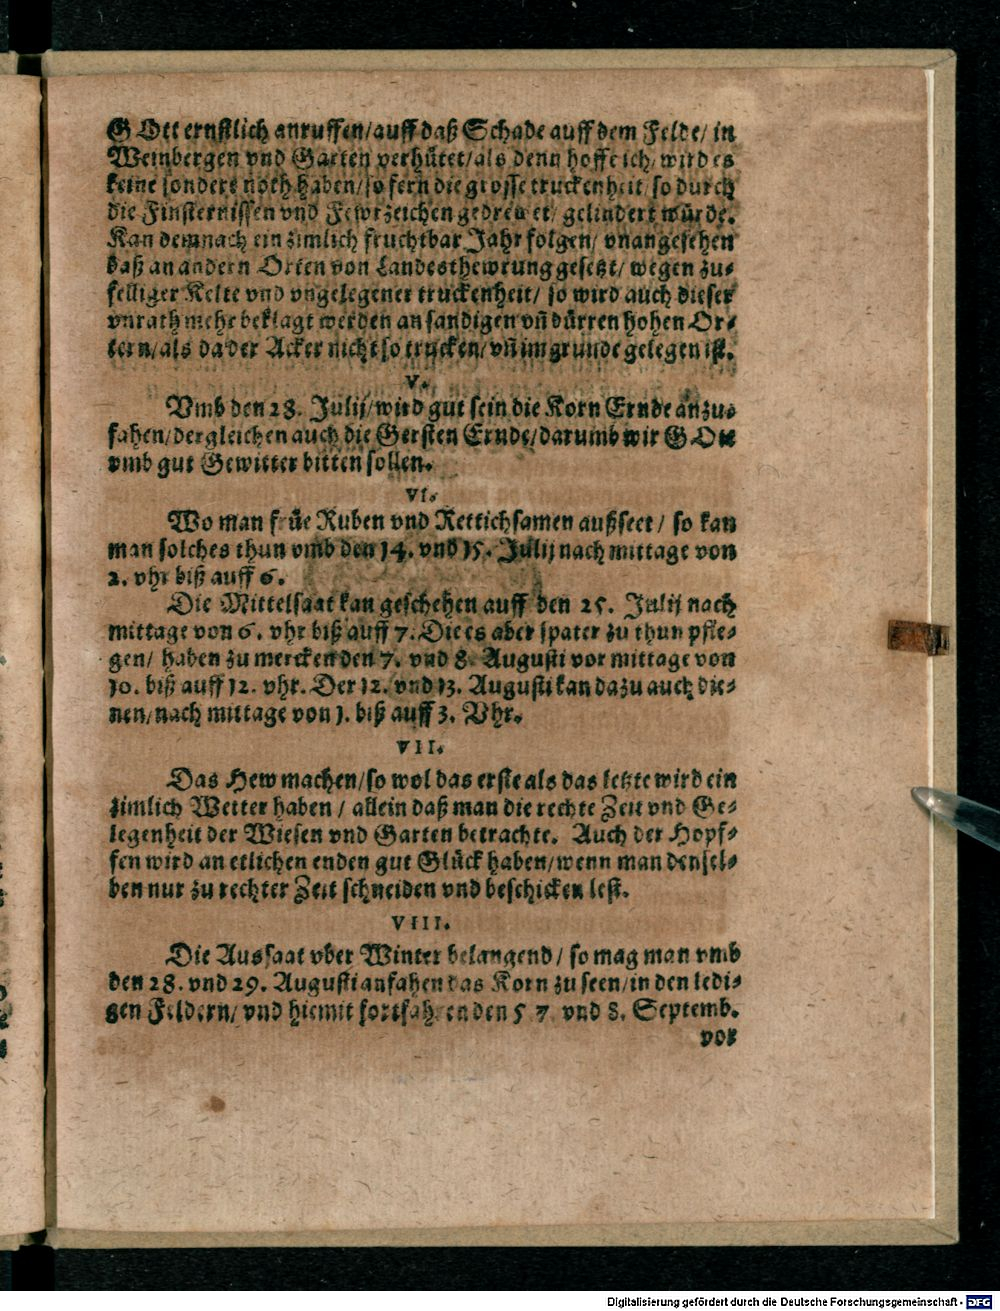 GOtt ernstlich anruffen/ auff daß Schade auff dem Felde/ in
Weinbergen vnd Garten verhütet/ als denn hoffe ich/ wird es
keine sondere noth haben/ so fern die grosse truckenheit/ so durch
die Finsternissen vnd Fewrzeichen gedrewet/ gelindert würde.
Kan demnach ein zimlich fruchtbar Jahr folgen/ vnangesehen
daß an andern Orten von Landesthewrung gesetzt/ wegen zu-
felliger Kelte vnd vngelegener truckenheit/ so wird auch dieser
vnrath mehr beklagt werden an sandigen vñ dürren hohen Or-
tern/ als da der Acker nicht so trucken/ vñ im grunde gelegen ist.
V.
Vmb den 28. Julij/ wird gut sein die Korn Ernde anzu-
fahen/ dergleichen auch die Gersten Ernde/ darumb wir GOtt
vmb gut Gewitter bitten sollen.
VI.
Wo man früe Ruben vnd Rettichsamen außseet/ so kan
man solches thun vmb den 14. vnd 15. Julij nach mittage von
2. vhr biß auff 6.
Die Mittelsaat kan geschehen auff den 25. Julij nach
mittage von 6. vhr biß auff 7. Die es aber spater zu thun pfle-
gen/ haben zu mercken den 7. vnd 8. Augusti vor mittage von
10. biß auff 12. vhr. Der 12. vnd 13. Augusti kan dazu auch die-
nen/ nach mittage von 1. biß auff 3. Vhr.
VII.
Das Hew machen/ so wol das erste als das letzte wird ein
zimlich Wetter haben/ allein daß man die rechte Zeit vnd Ge-
legenheit der Wiesen vnd Garten betrachte. Auch der Hopf-
fen wird an etlichen enden gut Glück haben/ wenn man densel-
ben nur zu rechter Zeit schneiden vnd beschicken lest.
VIII.
Die Aussaat vber Winter belangend/ so mag man vmb
den 28. vnd 29. Augusti anfahen das Korn zu seen/ in den ledi-
gen Feldern/ vnd hiemit fortfahren den 5 7. vnd 8. Septemb.
vor
Digitalisierung gefördert durch die Deutsche Forschungsgemeinschaft - DFG